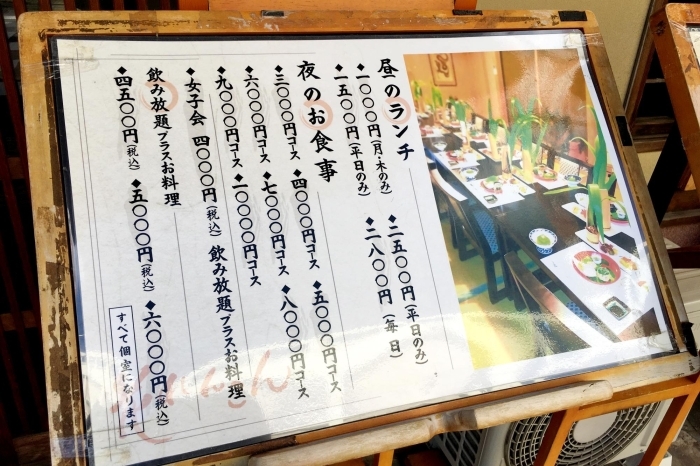 昼のランチ
◆一〇〇〇円(月・木のみ)
◆二五〇〇円(平日のみ)
◆一五〇〇円(平日のみ)
◆二八〇〇円(毎日)
夜のお食事
◆三〇〇〇円コース◆四〇〇〇円コース◆五〇〇〇円コース
◆六〇〇〇円コース◆七〇〇〇円コース◆八〇〇〇円コース
◆九〇〇〇円コース◆一〇〇〇〇円コース
◆女子会 四〇〇〇円(税込)飲み放題プラスお料理
飲み放題プラスお料理
◆四五〇〇円(税込)◆五〇〇〇円(税込)◆六〇〇〇円(税込)
すべて個室になります